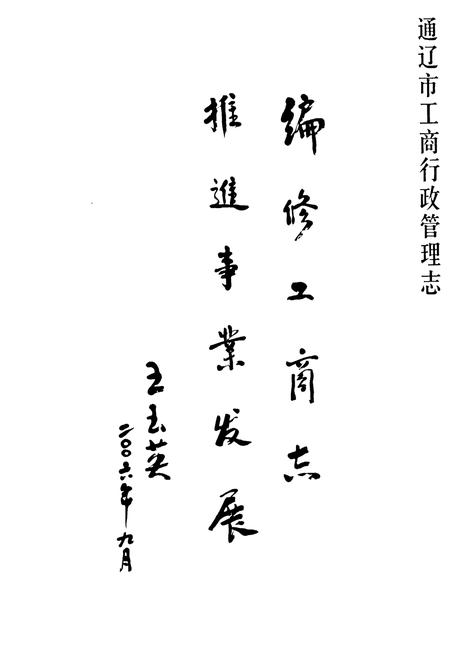 通辽市工商行政管理志
编修工商志
推進事業发展
王玉英
二〇〇六年九月